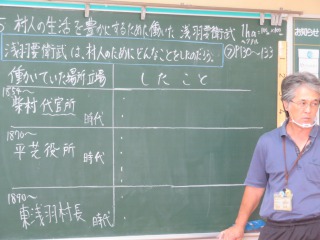 5 村人の生活を豊かにするため働いた 浅羽要衛武
1ha=100m×100m
ヘクタール
浅羽要衛武は、村人のためにどんなことをしたのだろう。
P130~133
働いていた場所立場
したこと
1854~
柴村代官所
時代
1870~
平芝役所
時代
1890~
東浅羽村長
時代
お知らせ